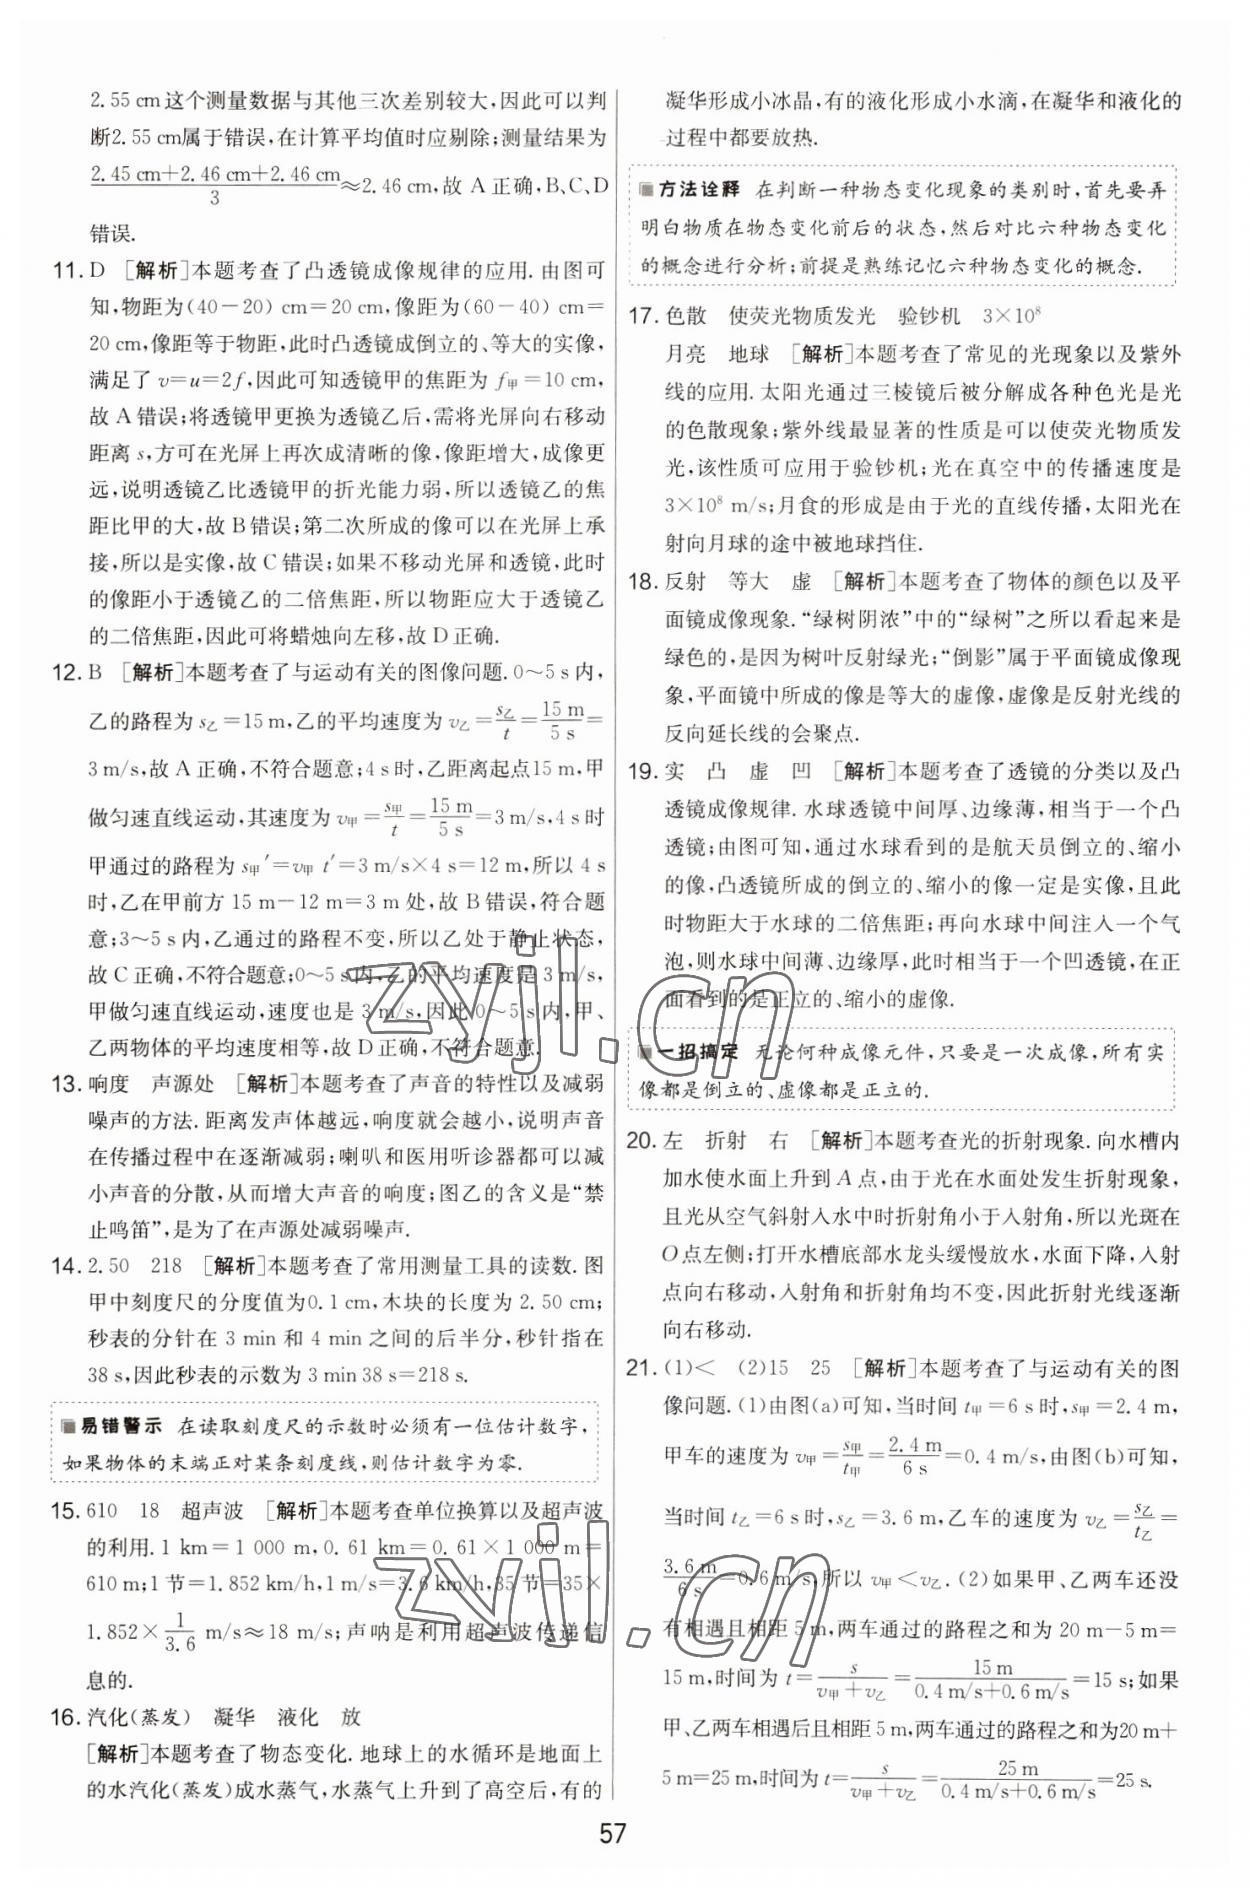 2.55 cm这个测量数据与其他三次差别较大,因此可以判
断2.55 cm属于错误,在计算平均值时应剔除;测量结果为
(2.45 cm+2.46 cm+2.46 cm)/3≈2.46 cm,故 A正确,B、C、D
错误.
11. D [解析]本题考查了凸透镜成像规律的应用.由图可
知,物距为(40-20) cm=20 cm,像距为(60-40) cm=
20 cm,像距等于物距,此时凸透镜成倒立的、等大的实像,
满足了 v=u=2f,因此可知透镜甲的焦距为 f甲=10 cm,
故 A 错误;将透镜甲更换为透镜乙后,需将光屏向右移动
距离 s,方可在光屏上再次成清晰的像,像距增大,成像更
远,说明透镜乙比透镜甲的折光能力弱,所以透镜乙的焦
距比甲的大,故 B错误;第二次所成的像可以在光屏上承
接,所以是实像,故 C错误;如果不移动光屏和透镜,此时
的像距小于透镜乙的二倍焦距,所以物距应大于透镜乙
的二倍焦距,因此可将蜡烛向左移,故 D正确.
12. B [解析]本题考查了与运动有关的图像问题.0～5 s内,
乙的路程为 s乙=15 m,乙的平均速度为 v乙=s乙/t=15 m/5 s=
3 m/s,故 A正确,不符合题意;4 s时,乙距离起点15 m,甲
做匀速直线运动,其速度为 v甲=s甲/t=15 m/5 s=3 m/s,4 s时
甲通过的路程为 s甲′=v甲 t′=3 m/s×4 s=12 m,所以 4 s
时,乙在甲前方 15 m-12 m=3 m 处,故 B错误,符合题
意;3～5 s内,乙通过的路程不变,所以乙处于静止状态,
故 C正确,不符合题意;0～5 s内,乙的平均速度是 3 m/s,
甲做匀速直线运动,速度也是 3 m/s,因此 0～5 s内,甲、
乙两物体的平均速度相等,故 D正确,不符合题意.
13. 响度 声源处 [解析]本题考查了声音的特性以及减弱
噪声的方法.距离发声体越远,响度就会越小,说明声音
在传播过程中在逐渐减弱;喇叭和医用听诊器都可以减
小声音的分散,从而增大声音的响度;图乙的含义是“禁
止鸣笛”,是为了在声源处减弱噪声.
14. 2.50 218 [解析]本题考查了常用测量工具的读数.图
甲中刻度尺的分度值为0.1 cm,木块的长度为 2.50 cm;
秒表的分针在 3 min 和 4 min 之间的后半分,秒针指在
38 s,因此秒表的示数为 3 min 38 s=218 s.
易错警示 在读取刻度尺的示数时必须有一位估计数字,
如果物体的末端正对某条刻度线,则估计数字为零.
15. 610 18 超声波 [解析]本题考查单位换算以及超声波
的利用.1 km=1 000 m,0.61 km=0.61×1 000 m=
610 m;1 节=1.852 km/h,1 m/s=3.6 km/h,35 节=35×
1.852×1/3.6 m/s≈18 m/s;声呐是利用超声波传递信
息的.
16. 汽化(蒸发) 凝华 液化 放
[解析]本题考查了物态变化.地球上的水循环是地面上
的水汽化(蒸发)成水蒸气,水蒸气上升到了高空后,有的
凝华形成小冰晶,有的液化形成小水滴,在凝华和液化的
过程中都要放热.
方法诠释 在判断一种物态变化现象的类别时,首先要弄
明白物质在物态变化前后的状态,然后对比六种物态变化
的概念进行分析;前提是熟练记忆六种物态变化的概念.
17. 色散 使荧光物质发光 验钞机 3×10⁸
月亮 地球 [解析]本题考查了常见的光现象以及紫外
线的应用.太阳光通过三棱镜后被分解成各种色光是光
的色散现象;紫外线最显著的性质是可以使荧光物质发
光,该性质可应用于验钞机;光在真空中的传播速度是
3×10⁸ m/s;月食的形成是由于光的直线传播,太阳光在
射向月球的途中被地球挡住.
18. 反射 等大 虚 [解析]本题考查了物体的颜色以及平
面镜成像现象.“绿树阴浓”中的“绿树”之所以看起来是
绿色的,是因为树叶反射绿光;“倒影”属于平面镜成像现
象,平面镜中所成的像是等大的虚像,虚像是反射光线的
反向延长线的会聚点.
19. 实 凸 虚 凹 [解析]本题考查了透镜的分类以及凸
透镜成像规律.水球透镜中间厚、边缘薄,相当于一个凸
透镜;由图可知,通过水球看到的是航天员倒立的、缩小
的像,凸透镜所成的倒立的、缩小的像一定是实像,且此
时物距大于水球的二倍焦距;再向水球中间注入一个气
泡,则水球中间薄、边缘厚,此时相当于一个凹透镜,在正
面看到的是正立的、缩小的虚像.
一招搞定 无论何种成像元件,只要是一次成像,所有实
像都是倒立的、虚像都是正立的.
20. 左 折射 右 [解析]本题考查光的折射现象.向水槽内
加水使水面上升到 A点,由于光在水面处发生折射现象,
且光从空气斜射入水中时折射角小于入射角,所以光斑在
O点左侧;打开水槽底部水龙头缓慢放水,水面下降,入射
点向右移动,入射角和折射角均不变,因此折射光线逐渐
向右移动.
21. (1)< (2)15 25 [解析]本题考查了与运动有关的图
像问题.(1)由图(a)可知,当时间 t甲=6 s时,s甲=2.4 m,
甲车的速度为 v甲=s甲/t甲=2.4 m/6 s=0.4 m/s,由图(b)可知,
当时间 t乙=6 s时,s乙=3.6 m,乙车的速度为 v乙=s乙/t乙=
3.6 m/6 s=0.6 m/s,所以 v甲<v乙.(2)如果甲、乙两车还没
有相遇且相距 5 m,两车通过的路程之和为 20 m-5 m=
15 m,时间为 t=s/(v甲+v乙)=15 m/(0.4 m/s+0.6 m/s)=15 s;如果
甲、乙两车相遇后且相距 5 m,两车通过的路程之和为20 m+
5 m=25 m,时间为 t=s/(v甲+v乙)=25 m/(0.4 m/s+0.6 m/s)=25 s.
zyjl.cn
zyjl.cn
57